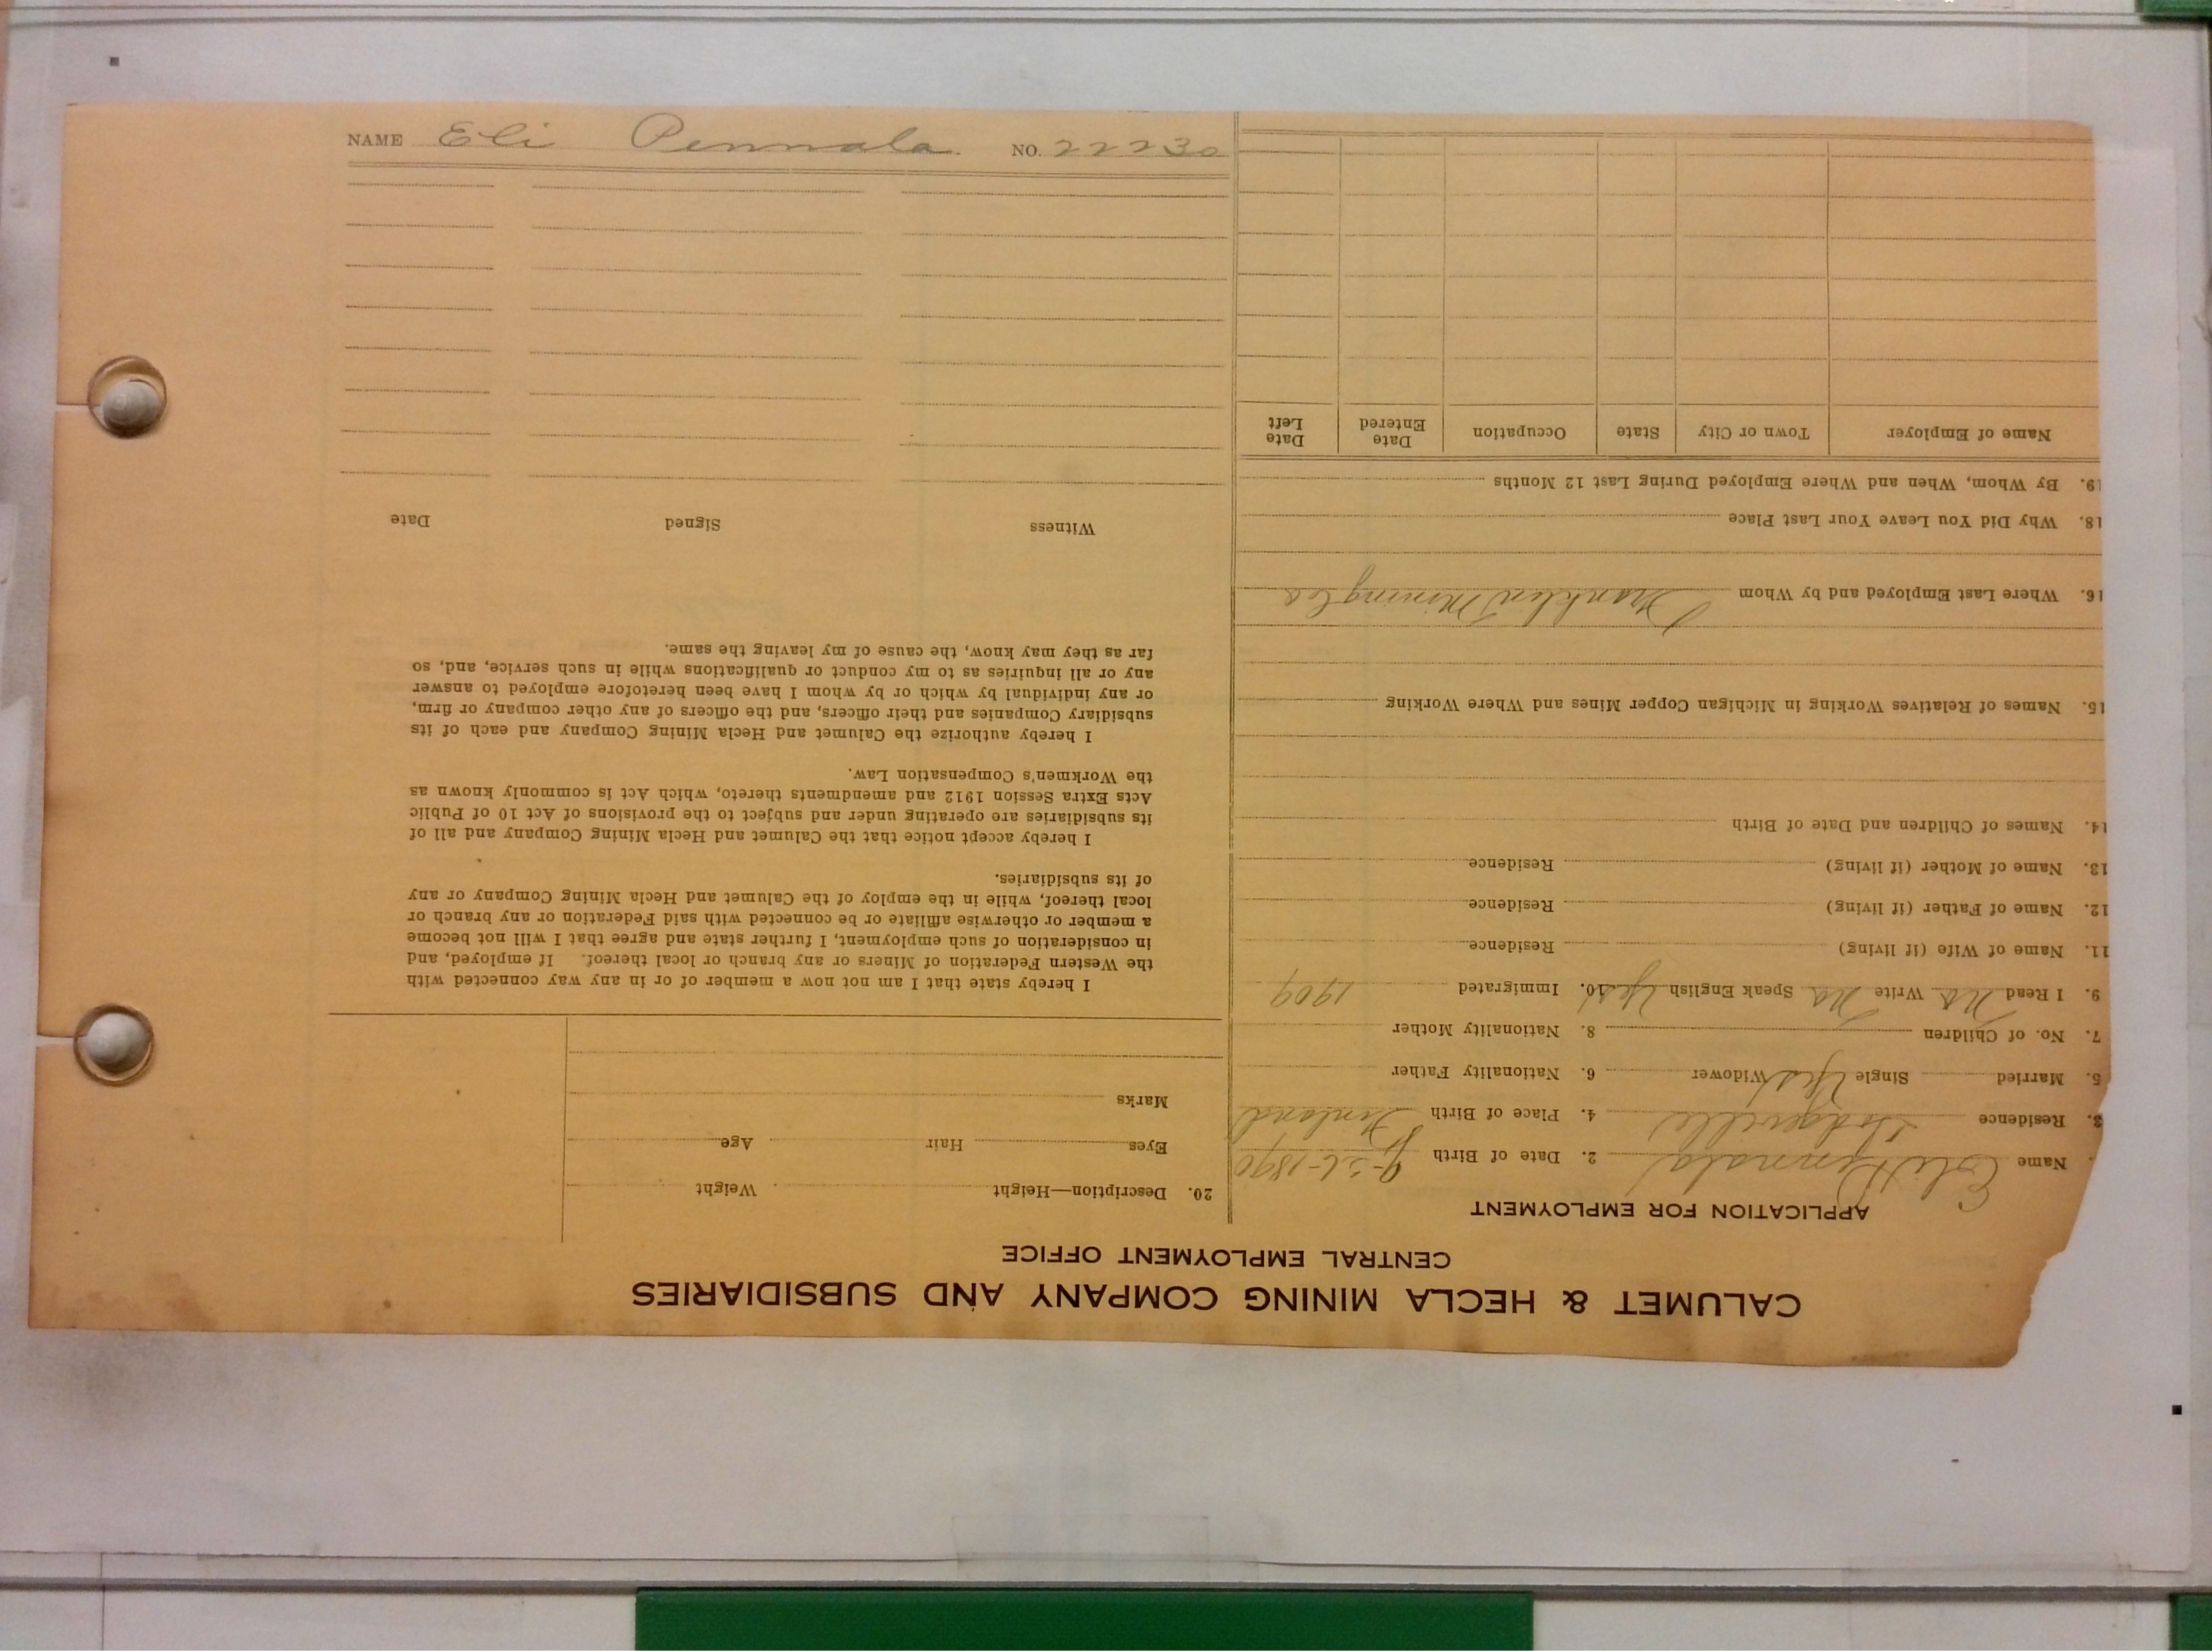 NAME Eli Pennala NO. 22230
CALUMET & HECLA MINING COMPANY AND SUBSIDIARIES
CENTRAL EMPLOYMENT OFFICE
APPLICATION FOR EMPLOYMENT
. Name Eli Pennala 2. Date of Birth 9-26-1890
3. Residence Dodgeville 4. Place of Birth Finland
5. Married Single Yes Widower 6. Nationality Father
7. No. of Children 8. Nationality Mother
9. I Read No Write No Speak English Yes 10. Immigrated 1909
11. Name of Wife (if living) Residence
12. Name of Father (if living) Residence
13. Name of Mother (if living) Residence
14. Names of Children and Date of Birth
15. Names of Relatives Working in Michigan Copper Mines and Where Working
16. Where Last Employed and by Whom Franklin Mining Co
18. Why Did You Leave Your Last Place
19. By Whom, When and Where Employed During Last 12 Months
Name of Employer Town or City State Occupation Date Entered Date Left
20. Description—Height Weight
Eyes Hair Age
Marks
I hereby state that I am not now a member of or in any way connected with
the Western Federation of Miners or any branch or local thereof. If employed, and
in consideration of such employment, I further state and agree that I will not become
a member or otherwise affiliate or be connected with said Federation or any branch or
local thereof, while in the employ of the Calumet and Hecla Mining Company or any
of its subsidiaries.
I hereby accept notice that the Calumet and Hecla Mining Company and all of
its subsidiaries are operating under and subject to the provisions of Act 10 of Public
Acts Extra Session 1912 and amendments thereto, which Act is commonly known as
the Workmen's Compensation Law.
I hereby authorize the Calumet and Hecla Mining Company and each of its
subsidiary Companies and their officers, and the officers of any other company or firm,
or any individual by which or by whom I have been heretofore employed to answer
any or all inquiries as to my conduct or qualifications while in such service, and, so
far as they may know, the cause of my leaving the same.
Witness Signed Date